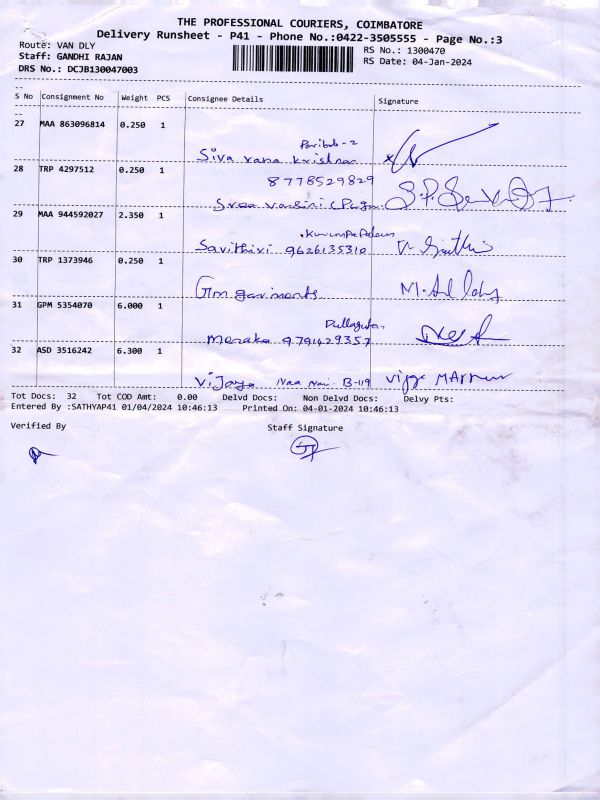 THE PROFESSIONAL COURIERS, COIMBATORE
Delivery Runsheet - P41 - Phone No.:0422-3505555 - Page No.:3
Route: VAN DLY
RS No.: 1300470
Staff: GANDHI RAJAN
RS Date: 04-Jan-2024
DRS No.: DCJB130047003
--
S No Consignment No Weight PCS Consignee Details Signature
--
27 MAA 863096814 0.250 1
Siva krishnan
28 TRP 4297512 0.250 1 8778529829
Sree
29 MAA 944592027 2.350 1
Savithiri 9626135310
30 TRP 1373946 0.250 1
Gm garments
31 GPM 5354070 6.000 1
9791429357
32 ASD 3516242 6.300 1
Vijaya B-119
Tot Docs: 32 Tot COD Amt: 0.00 Delvd Docs: Non Delvd Docs: Delvy Pts:
Entered By :SATHYAP41 01/04/2024 10:46:13 Printed On: 04-01-2024 10:46:13
Verified By Staff Signature